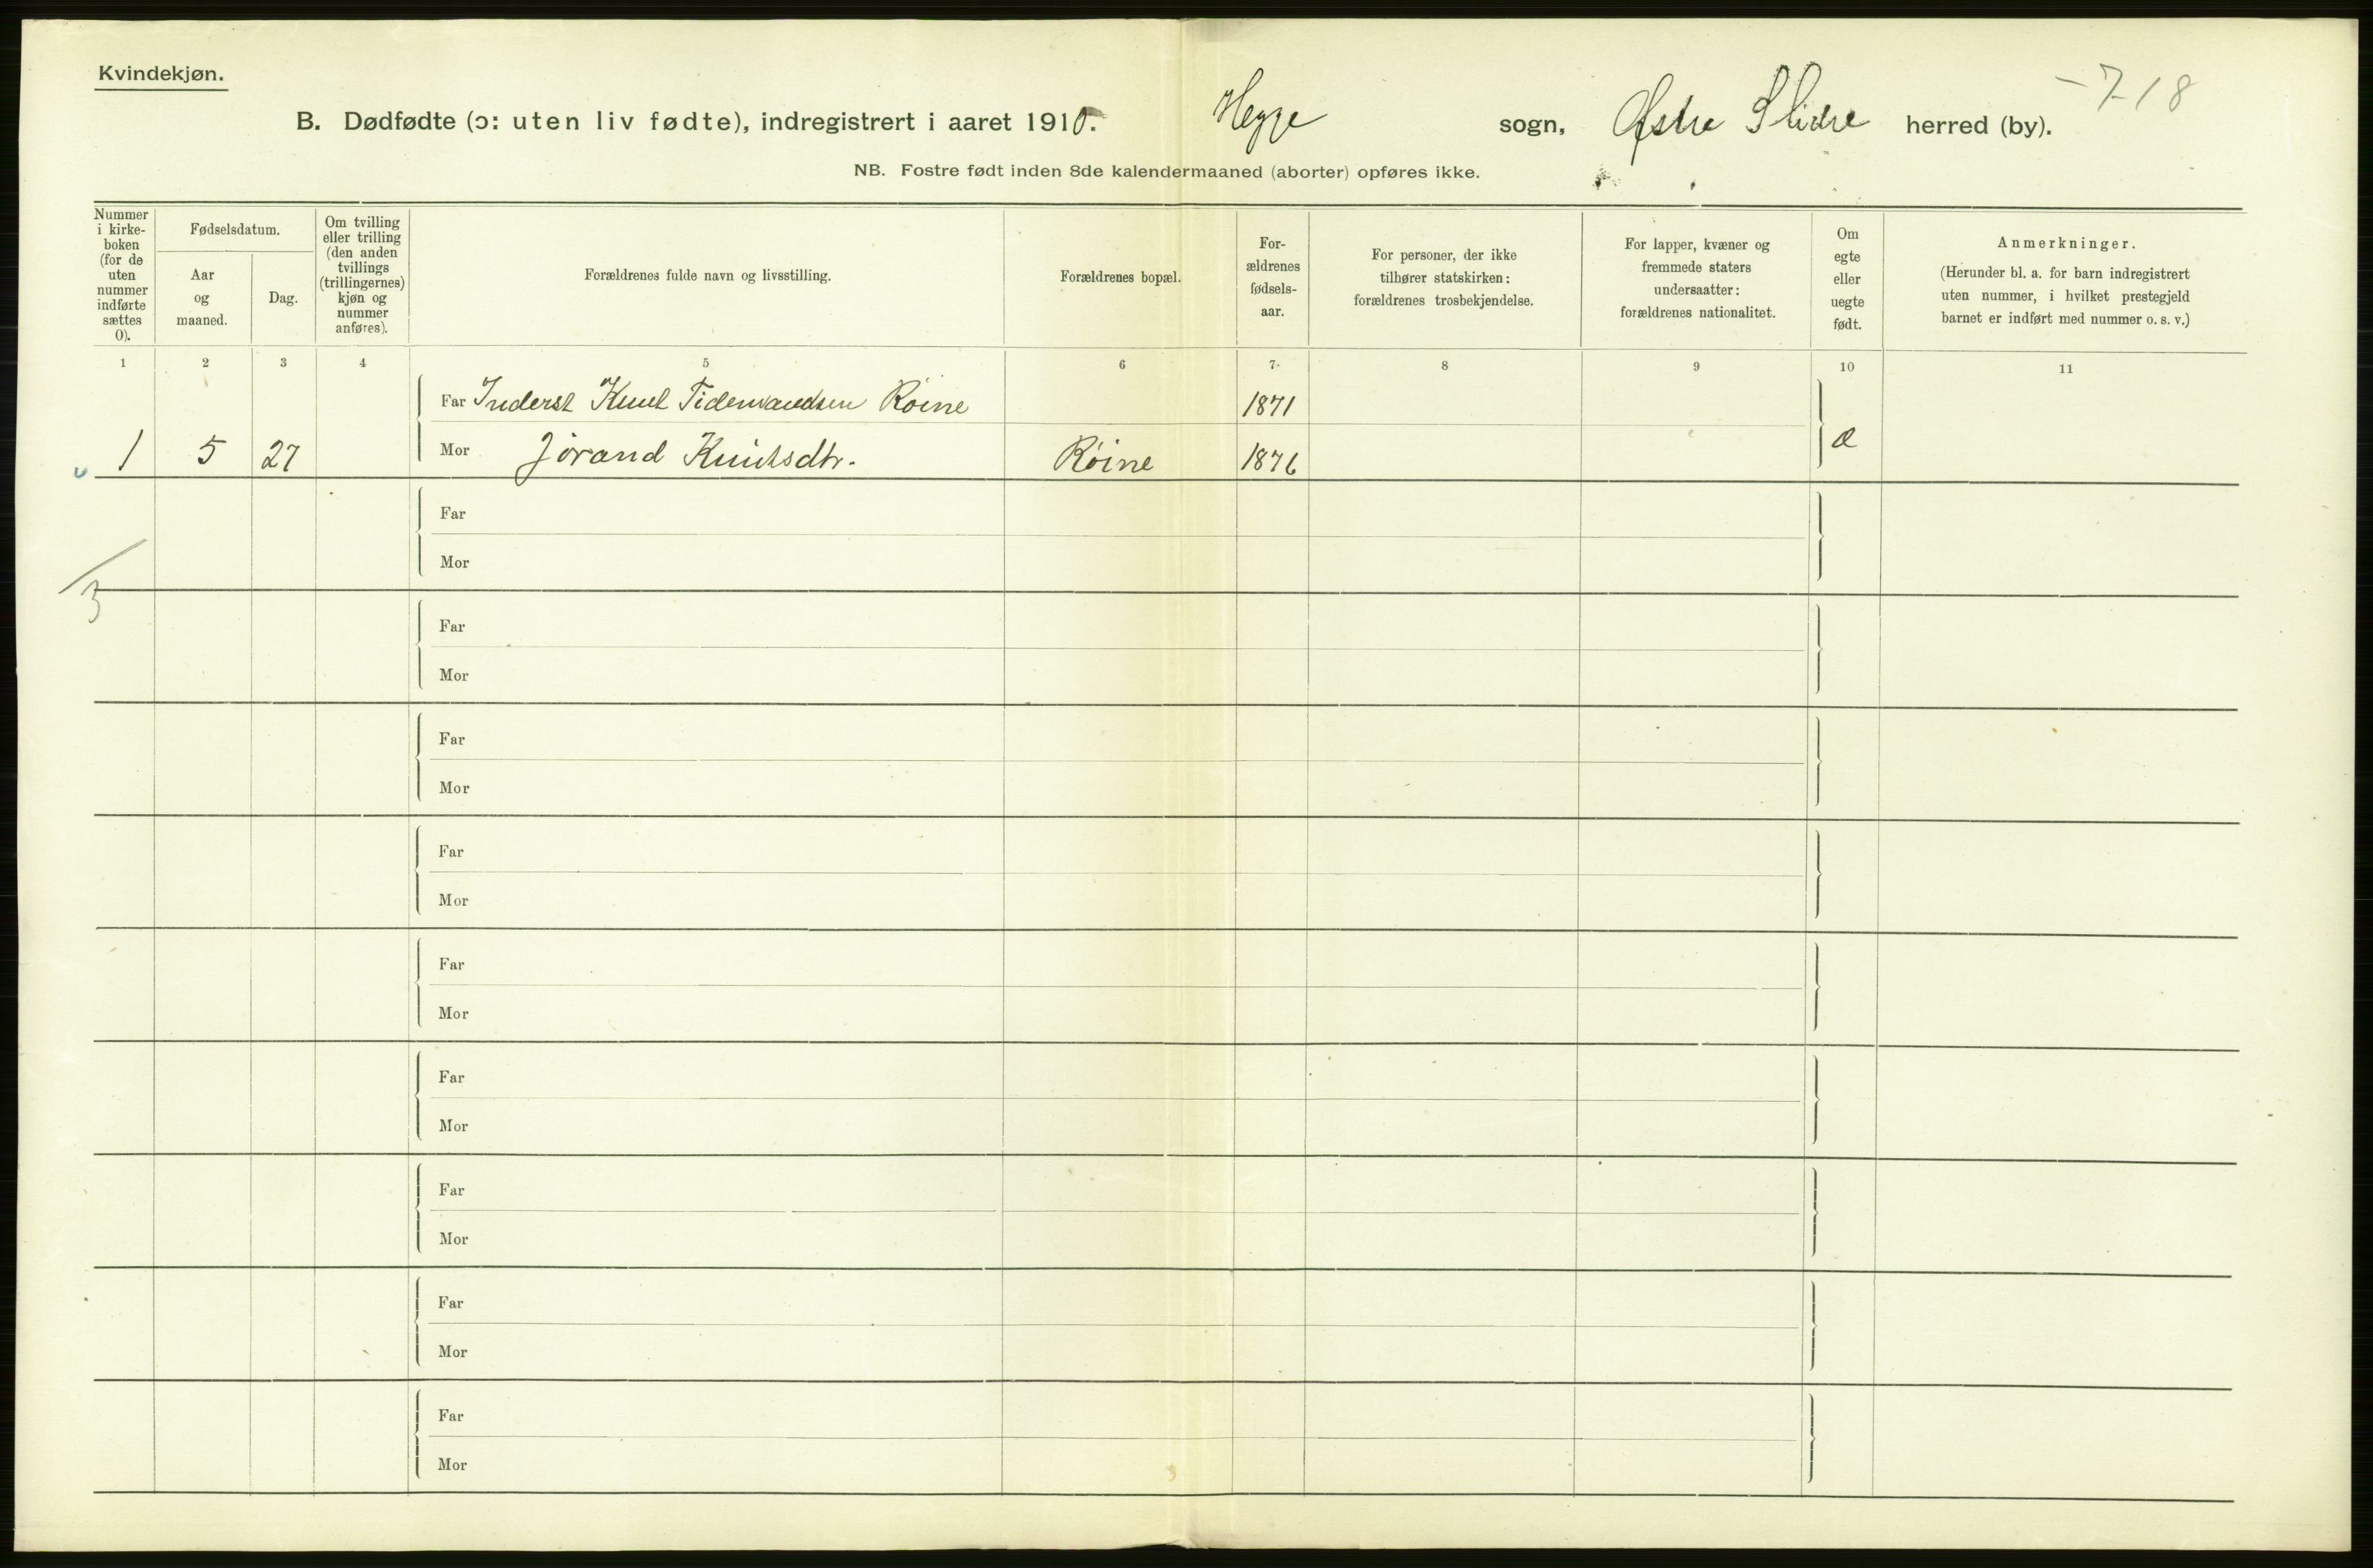 Kvindekjøn.
-718
B. Dødfødte (ɔ: uten liv fødte), indregistrert i aaret 1910. Hegge sogn, Østre Slidre herred (by).
NB. Fostre født inden 8de kalendermaaned (aborter) opføres ikke.
Nummer i kirke-boken (for de uten nummer indførte sættes 0).
Fødselsdatum.
Aar og maaned.
Dag.
Om tvilling eller trilling (den anden tvillings (trillingernes) kjøn og nummer anføres).
Forældrenes fulde navn og livsstilling.
Forældrenes bopæl.
For-ældrenes fødsels-aar.
For personer, der ikke tilhører statskirken: forældrenes trosbekjendelse.
For lapper, kvæner og fremmede staters undersaatter: forældrenes nationalitet.
Om egte eller uegte født.
Anmerkninger.
(Herunder bl. a. for barn indregistrert uten nummer, i hvilket prestegjeld barnet er indført med nummer o. s. v.)
1 2 3 4 5 6 7 8 9 10 11
Far Inderst Knut Tidemandsen Röine 1871
1 5 27 Mor Jörand Knutsdtr. Röine 1876 Æ
Far
Mor
3
Far
Mor
Far
Mor
Far
Mor
Far
Mor
Far
Mor
Far
Mor
Far
Mor
Far
Mor